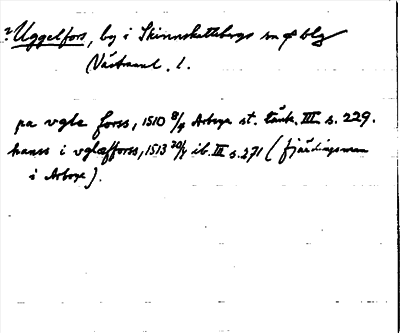 ? Uggelfors, by i Skinnskattebergs sn o blg
(Västmanl. l.
pa vgle forss, 1510 8/4 Arboga st. tänk. III s. 229.
hanss i vglæfforss, 1513 20/4 ib. III s. 271 (fjärdingsman
i Arboga).